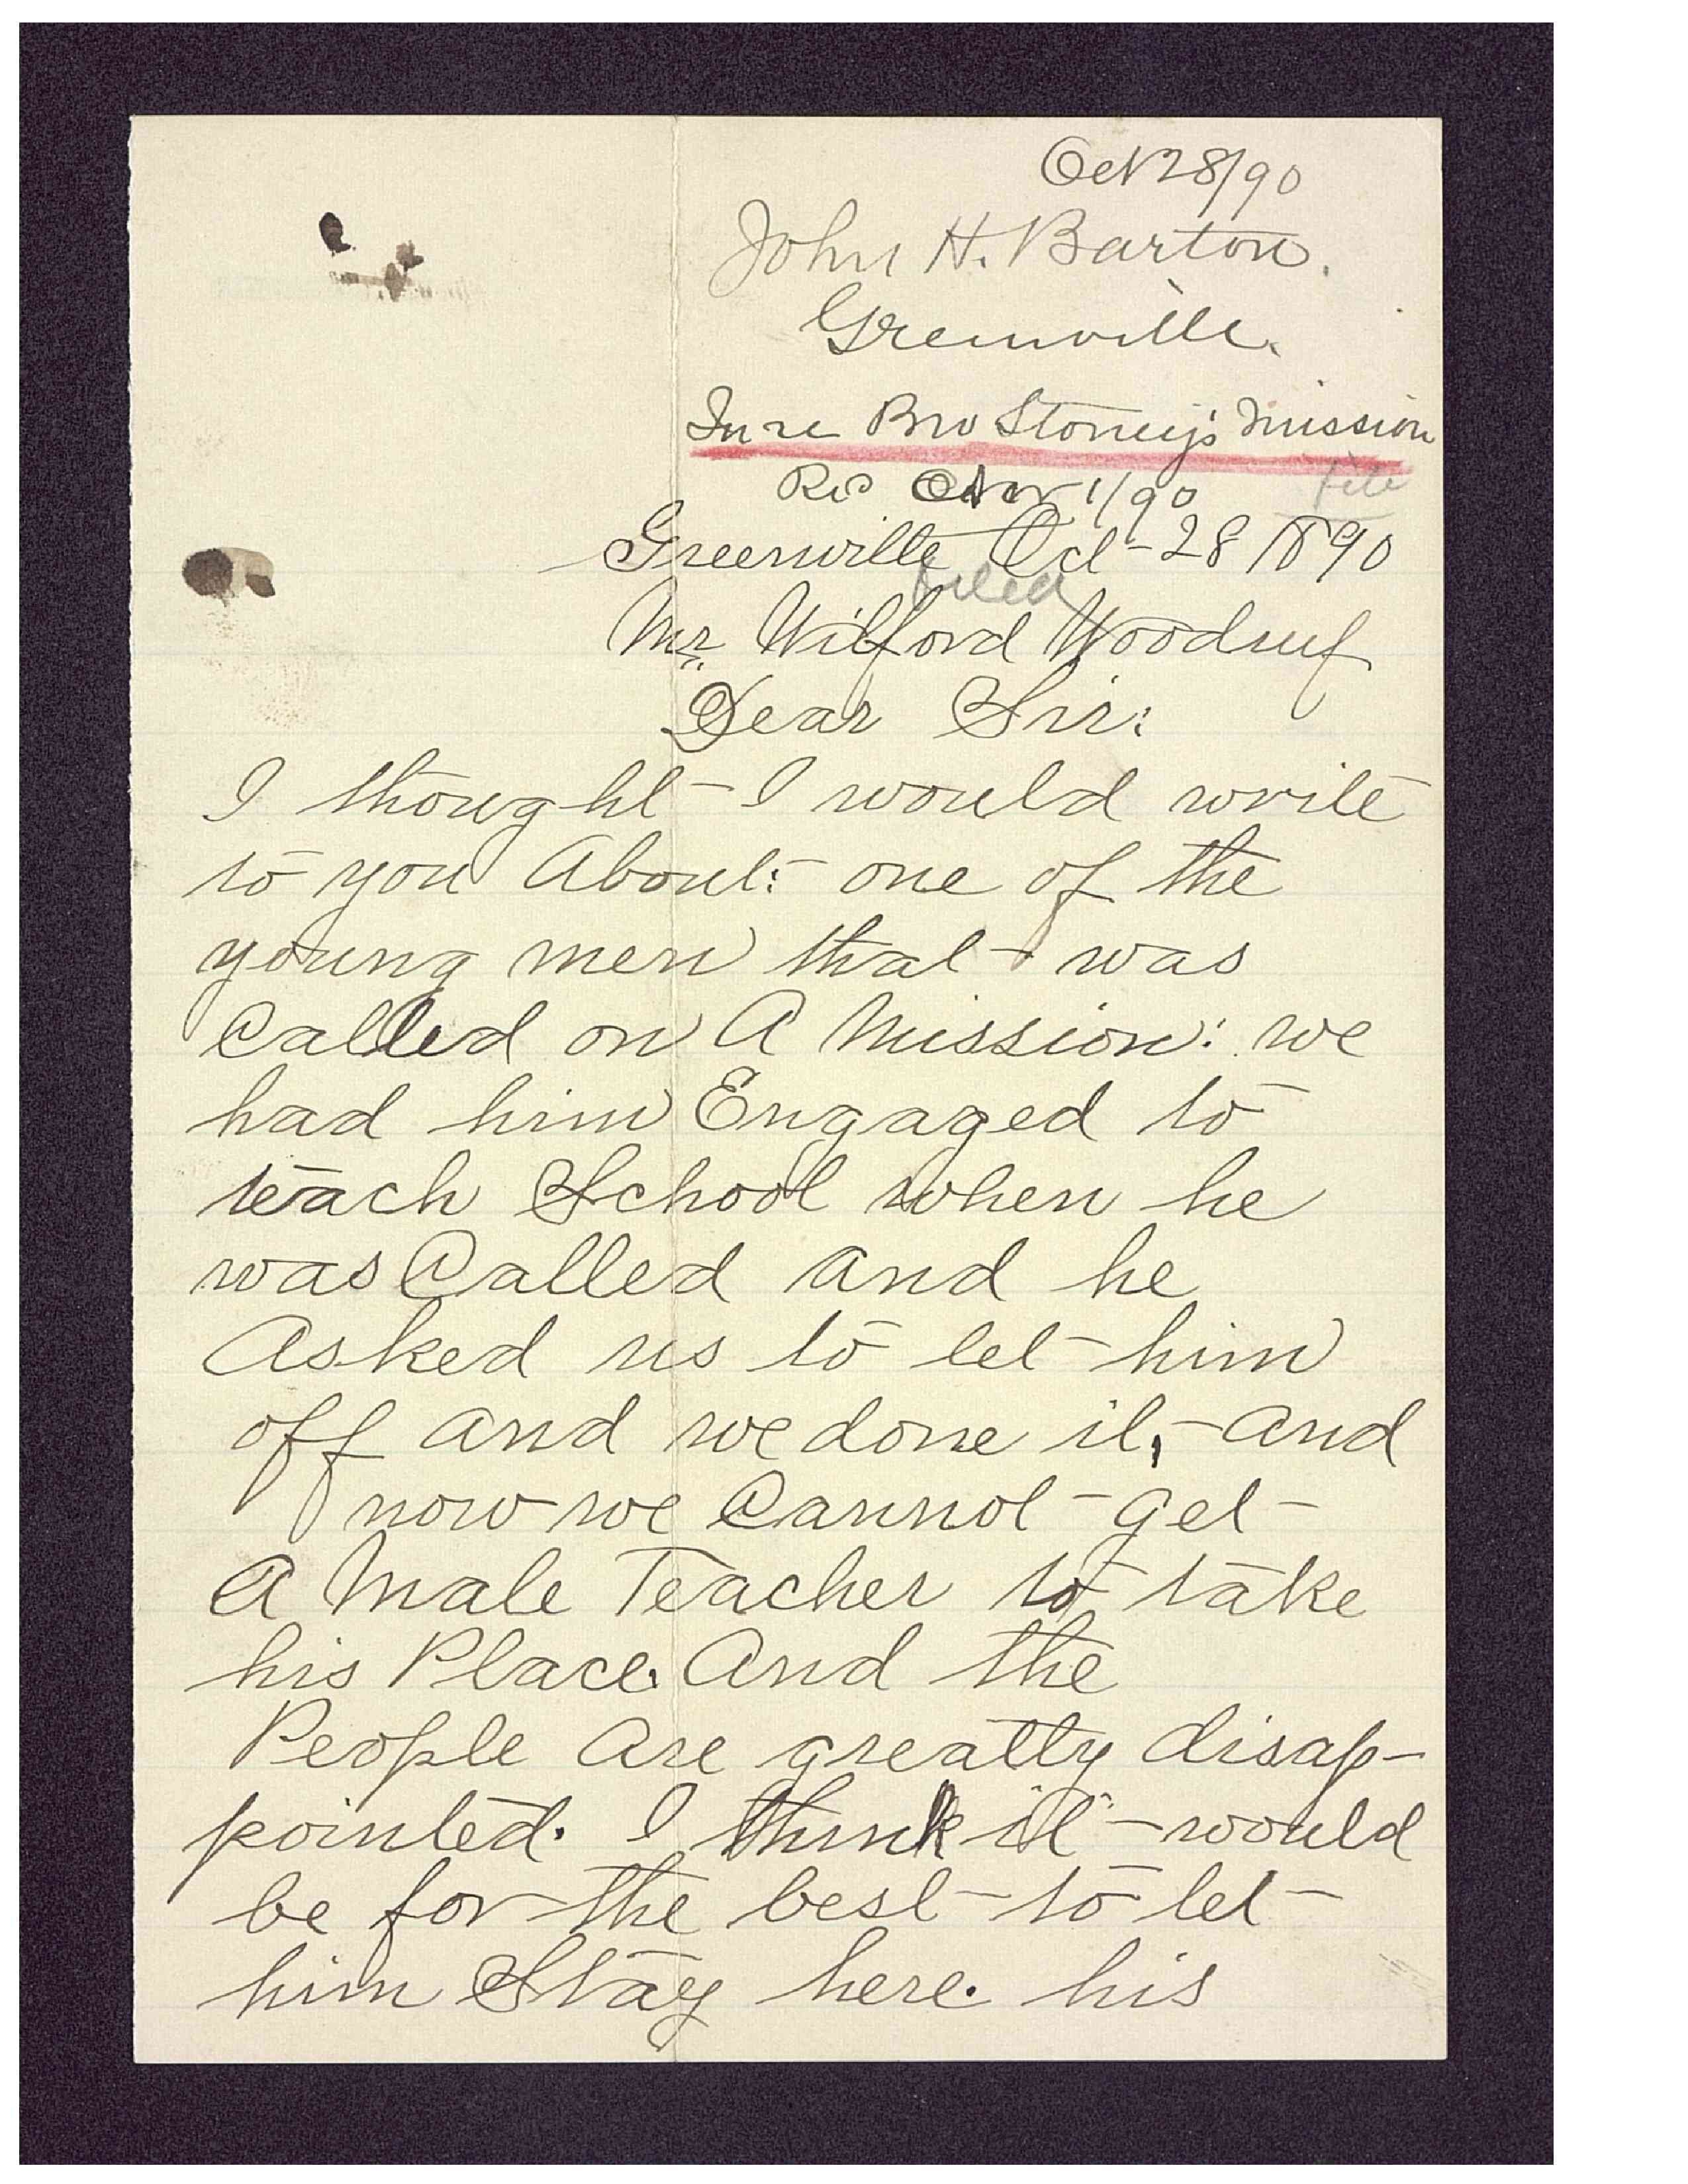 Oct 28/90
John H. Barton.
Greenville.
In re Bro Stoney's Mission
Rec Nov 1/90 file
Greenville Oct-28 1890
filed
Mr. Wilford Woodruf
Dear Sir:
I thought- I would write
to you About: one of the
young men that- was
Called on A Mission: we
had him Engaged to
teach School when he
was Called and he
Asked us to let him
off and we done it, - and
now we Cannot- get-
A Male Teacher to take
his Place. And the
People Are greatly disap-
pointed. I think it- would
be for the best- to let-
him Stay here. his